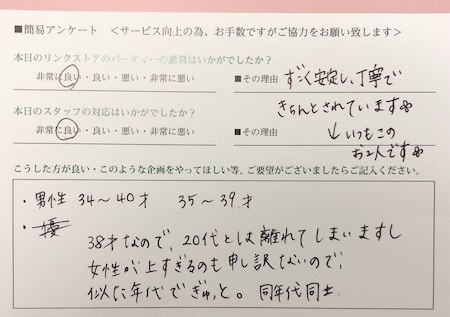 ■簡易アンケート ＜サービス向上の為、お手数ですがご協力をお願い致します＞
本日のリンクストアのパーティーの運営はいかがでしたか？
非常に良い・良い・悪い・非常に悪い
■その理由 すごく安定し、丁寧で
きちんとされています
本日のスタッフの対応はいかがでしたか？
非常に良い・良い・悪い・非常に悪い
■その理由 ↓いつもこの
お2人です
こうした方が良い・このような企画をやってほしい等、ご要望がございましたらご記入ください。
・男性 34～40才 35～39才
・
38才なので、20代とは離れてしまいますし
女性が上すぎるのも申し訳ないので、
似た年代でぎゅっと。同年代同士